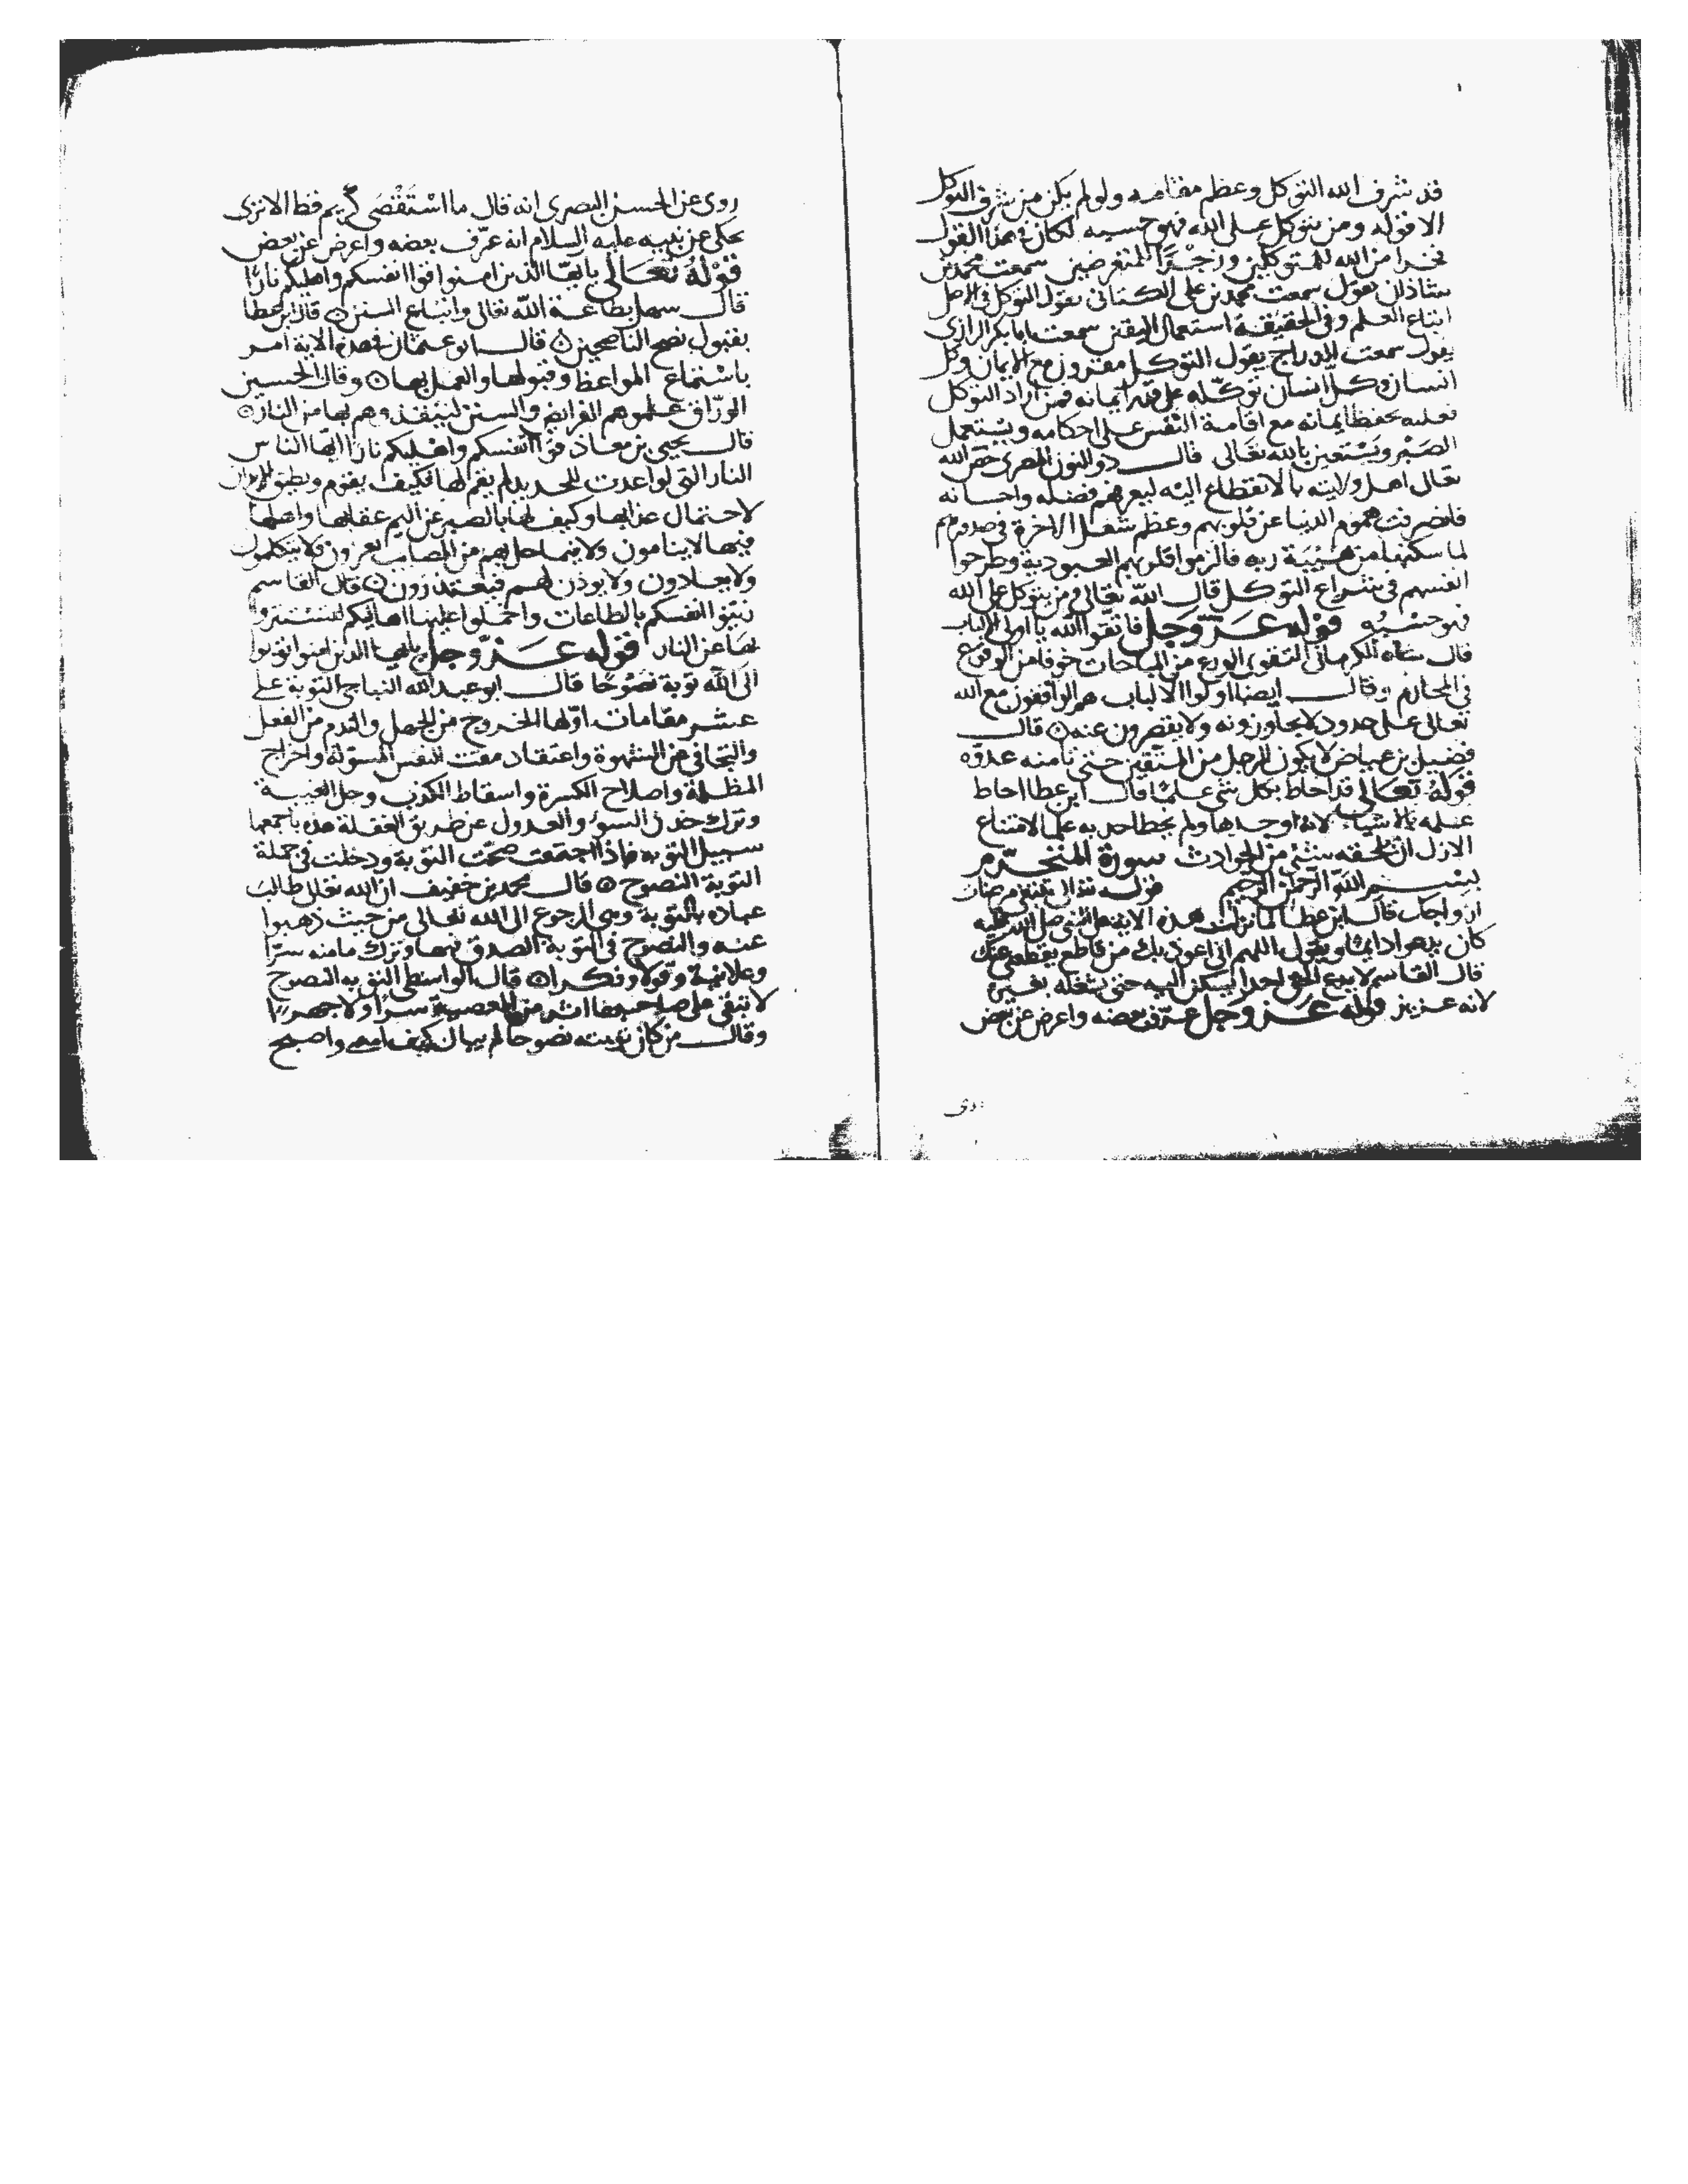 قد شرف الله التوكل وعظم مقامه ولو لم يكن من شرف التوكل
الا قوله ومن يتوكل على الله فهو حسبه لكان في هذا القول
من الله للمتوكلين وزجرا للمتعرضين سمعت محمد بن
شاذان يقول سمعت محمد بن على الكتانى يقول التوكل في الاصل
اتباع العلم وفى الحقيقة استعمال اليقين سمعت ابا بكر الرازى
يقول سمعت الدراج يقول التوكل مقرون مع الايمان وكل
انسان وكل انسان توكله على قدر ايمانه فمن اراد التوكل
فعليه بحفظ ايمانه مع اقامة النفس على احكامه ويستعمل
الصبر ويستعين بالله تعالى قال ذو النون المصرى خص الله
تعالى اهل ولايته بالانقطاع اليه ليعرفهم فضله واحسانه
فانصرفت هموم الدنيا عن قلوبهم وعظم شغل الاخرة فى صدورهم
لما سكنها من هيبة ربه فالزموا قلوبهم العبودية وطرحوا
انفسهم فى شراع التوكل قال الله تعالى ومن يتوكل على الله
فهو حسبه قوله عز وجل فاتقوا الله يا اولى الالباب
قال شاه الكرمانى التقوى الورع من المباحات خوفا من الوقوع
فى المحارم وقال ايضا اولوا الالباب هم الواقفون مع الله
تعالى على حدود لا يجاوزونه ولا يقصرون عنه قال
فضيل بن عياض لا يكون الرجل من المتقين حتى يأمنه عدوه
قوله تعالى قد احاط بكل شئ علما قال ابن عطا احاط
علمه بالاشياء لانه اوجدها ولم يحط احد به علما لامتناع
الازل ان يلحقه شئ من الحوادث سورة المتحرم
بسم الله الرحمن الرحيم قوله تعالى تبتغى مرضات
ازواجك قال ابن عطا لما نزلت هذه الاية على النبى صلى الله عليه
كان يدعو دايما ويقول اللهم انى اعوذ بك من قاطع يقطعنى عنك
قال القاسم لا يدع الحق احدا يسكن اليه حتى يشغله بغيره
لانه عزيز قوله عز وجل عرف بعضه واعرض عن بعض
روى
روى عن الحسن البصرى انه قال ما استقصى كريم قط الا ترى
حكى عن نبيه عليه السلام انه عرف بعضه واعرض عن بعض
قوله تعالى يا ايها الذين امنوا قوا انفسكم واهليكم نارا
قال سهل بطاعة الله تعالى واتباع السنن قال ابن عطا
بقبول نصح الناصحين قال ابو عثمان في هذه الاية امر
باستماع المواعظ وقبولها والعمل بها وقال الحسين
الوراق علموهم الفرايض والسنن لينقذوهم بها من النار
قال يحيى بن معاذ قوا انفسكم واهليكم نارا ايها الناس
النار التى لو اعدت للحديد لم يقم لها فكيف يقوم ويطيق
لاحتمال عذابها وكيف لها بالصبر عن اليم عقابها واهلها
فيها لا ينامون ولا فيما حل بهم من المصايب يعزون ولا يتكلمون
ولا يعادون ولا يوذن لهم فيعتذرون قال القاسم
انفسكم بالطاعات واحملوا عليها اهاليكم
بها عن النار قوله عز وجل يايها الذين امنوا توبوا
الى الله توبة نصوحا قال ابو عبد الله النباجى التوبة على
عشر مقامات اولها الخروج من الجهل والندم من الفعل
والتجافى عن الشهوة واعتقاد مقت النفس المسولة واخراج
المظلمة واصلاح الكسرة واسقاط الكذب وحل الغيبة
وترك خدن السوء والعدول عن طريق الغفلة هذه باجمعها
سبيل التوبه فاذا اجتمعت صحت التوبة ودخلت فى جملة
التوبة النصوح قال محمد بن خفيف ان الله تعالى طالب
عباده بالتوبة وهى الرجوع الى الله تعالى من حيث ذهبوا
عنه والنصوح فى التوبة الصدق فيها وترك ما منه سرا
وعلانية وقولا وفكرا قال الواسطى التوبه النصوح
لا تبقى على صاحبها اثر من المعصية سرا ولا جهرا
وقال من كان توبته نصوحا لم يبال كيف امسى واصبح